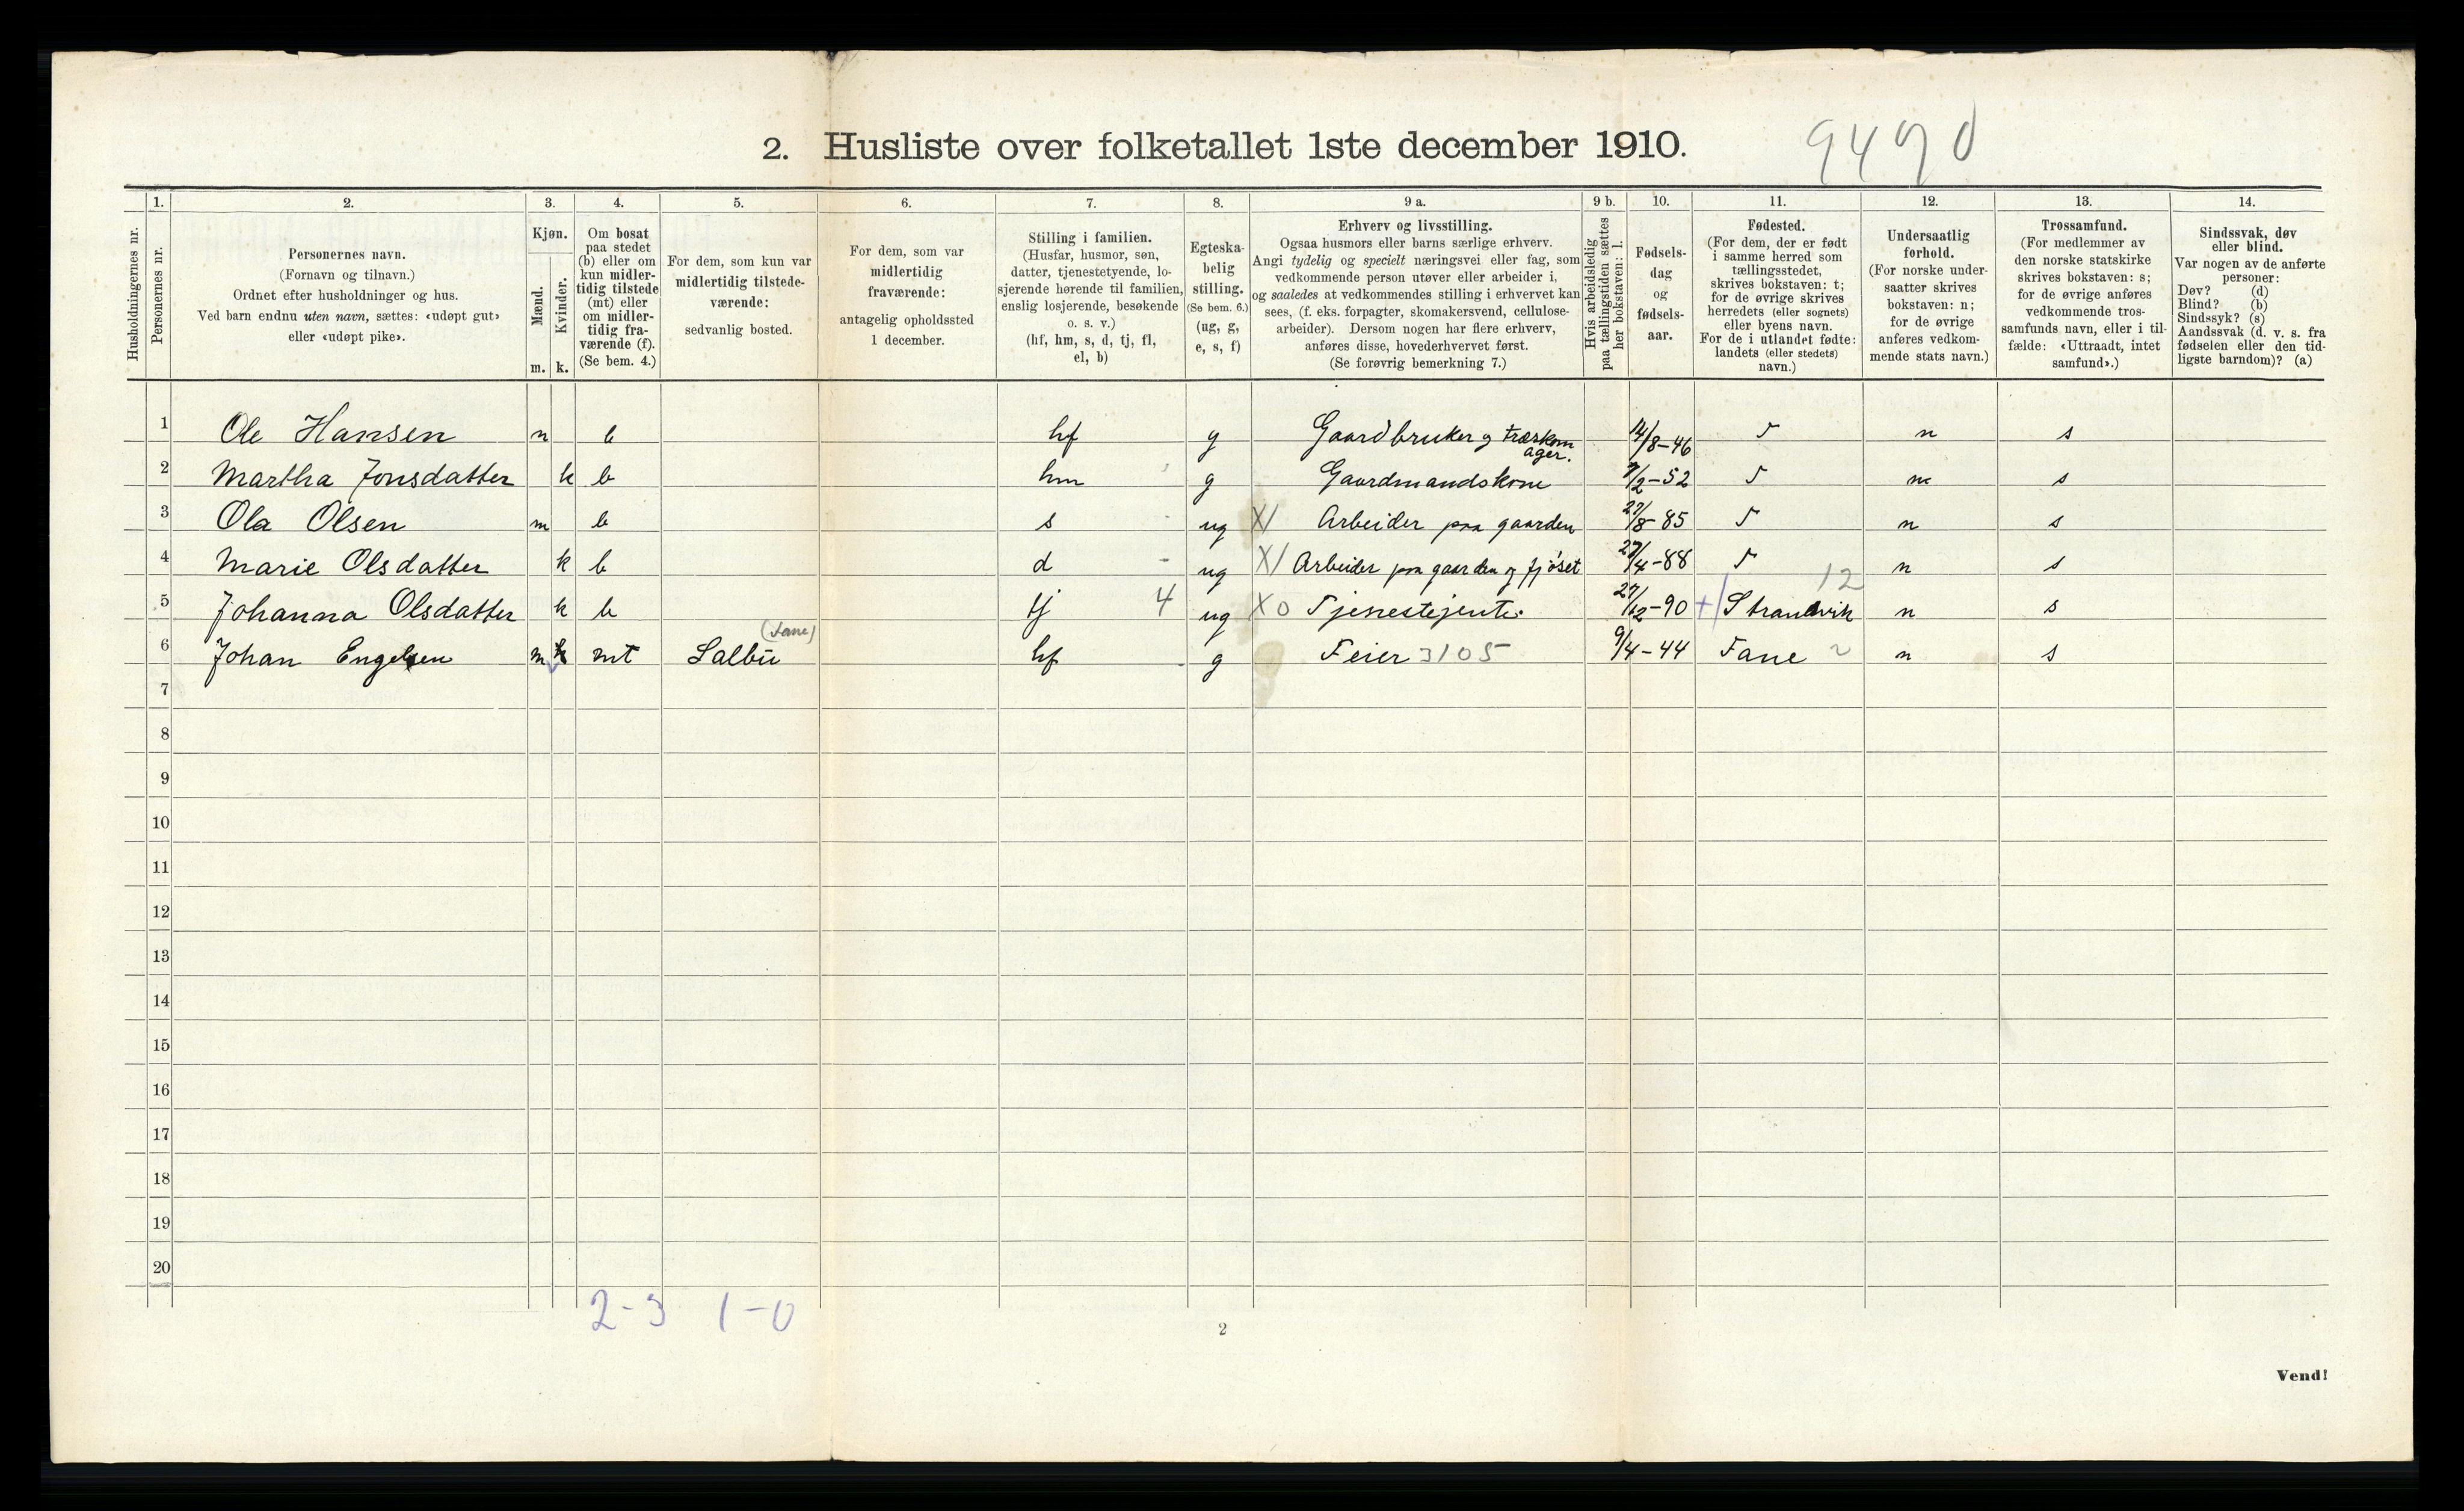 2. Husliste over folketallet 1ste december 1910.
9490
Husholdningernes nr.
1.
Personernes nr.
2.
Personernes navn.
(Fornavn og tilnavn.)
Ordnet efter husholdninger og hus.
Ved barn endnu uten navn, sættes: «udøpt gut»
eller «udøpt pike».
3.
Kjøn.
Mænd.
Kvinder.
m. k.
4.
Om bosat
paa stedet
(b) eller om
kun midler-
tidig tilstede
(mt) eller
om midler-
tidig fra-
værende (f).
(Se bem. 4.)
5.
For dem, som kun var
midlertidig tilstede-
værende:
sedvanlig bosted.
6.
For dem, som var
midlertidig
fraværende:
antagelig opholdssted
1 december.
7.
Stilling i familien.
(Husfar, husmor, søn,
datter, tjenestetyende, lo-
sjerende hørende til familien,
enslig losjerende, besøkende
o. s. v.)
(hf, hm, s, d, tj, fl,
el, b)
8.
Egteska-
belig
stilling.
(Se bem. 6.)
(ug, g,
e, s, f)
9 a.
Erhverv og livsstilling.
Ogsaa husmors eller barns særlige erhverv.
Angi tydelig og specielt næringsvei eller fag, som
vedkommende person utøver eller arbeider i,
og saaledes at vedkommendes stilling i erhvervet kan
sees, (f. eks. forpagter, skomakersvend, cellulose-
arbeider). Dersom nogen har flere erhverv,
anføres disse, hovederhvervet først.
(Se forøvrig bemerkning 7.)
9 b.
Hvis arbeidsledig
paa tællingstiden sættes
her bokstaven: l.
10.
Fødsels-
dag
og
fødsels-
aar.
11.
Fødested.
(For dem, der er født
i samme herred som
tællingsstedet,
skrives bokstaven: t;
for de øvrige skrives
herredets (eller sognets)
eller byens navn.
For de i utlandet fødte:
landets (eller stedets)
navn.)
12.
Undersaatlig
forhold.
(For norske under-
saatter skrives
bokstaven: n;
for de øvrige
anføres vedkom-
mende stats navn.)
13.
Trossamfund.
(For medlemmer av
den norske statskirke
skrives bokstaven: s;
for de øvrige anføres
vedkommende tros-
samfunds navn, eller i til-
fælde: «Uttraadt, intet
samfund».)
14.
Sindssvak, døv
eller blind.
Var nogen av de anførte
personer:
Døv? (d)
Blind? (b)
Sindssyk? (s)
Aandssvak (d. v. s. fra
fødselen eller den tid-
ligste barndom)? (a)
1 Ole Hansen m b hf g Gaardbruker g 14/8-46 t n s
2 Martha Jonsdatter k b hm g Gaardmandskone 7/2-52 t n s
3 Ola Olsen m b s ug X/ Arbeider paa gaarden 29/8-85 t n s
4 Marie Olsdatter k b d ug X/ Arbeider paa gaarden og fjøset 27/4-88 t n s
12
5 Johanna Olsdatter k b tj 4 ug X0 Tjenestejente. 27/12-90 +/ Strandvik n s
(Fane)
6 Johan Engelsen m k mt Salbu hf g Feier 3105 9/4-44 Fane 2 n s
7
8
9
10
11
12
13
14
15
16
17
18
19
20
2-3 1-0
2
Vend!